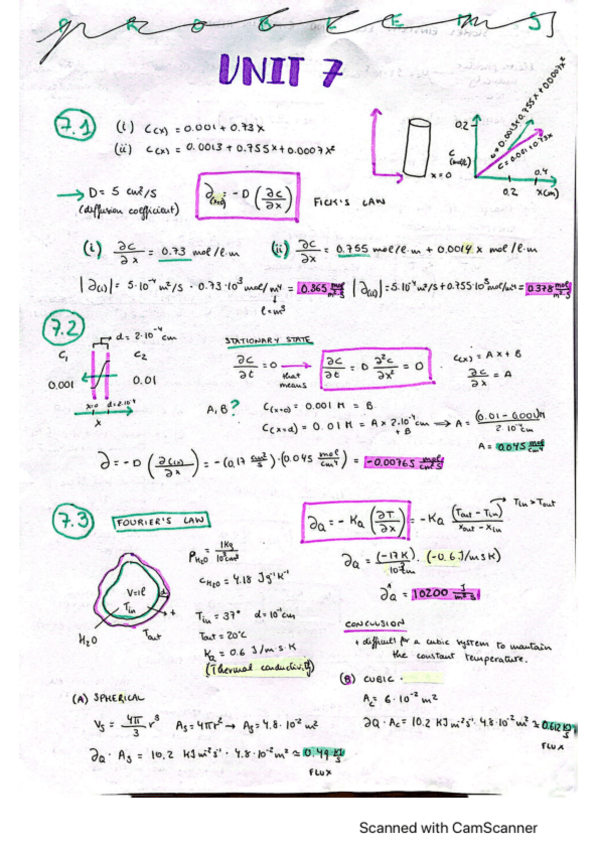 PROBLEMS
UNIT 7
7.1
(i) C(x) = 0.001 + 0.73x
(ii) C(x) = 0.0013 + 0.755x + 0.0007x²
0.2
C (mol/l)
C = 0.0013 + 0.755x + 0.0007x²
C = 0.001 + 0.73x
x=0
0.2
0.4
x(cm)
→ D = 5 cm²/s
(diffusion coefficient)
∂(x) = -D (∂c/∂x)
FICK'S LAW
(i) ∂c/∂x = 0.73 mol/l·m
(ii) ∂c/∂x = 0.755 mol/l·m + 0.0014 x mol/l·m
|∂(i)| = 5·10⁻⁴ m²/s · 0.73·10³ mol/m⁴ = 0.365 mol/m²·s
|∂(ii)| = 5·10⁻⁴ m²/s + 0.755·10³ mol/m⁴ = 0.378 mol/m²·s
7.2
d = 2·10⁻⁴ cm
C₁
C₂
0.001
0.01
x=0
d=2·10⁻⁴
x
STATIONARY STATE
∂c/∂t = 0
that means
∂c/∂t = D ∂²c/∂x² = 0
C(x) = Ax + B
∂c/∂x = A
A, B?
C(x=0) = 0.001 M = B
C(x=d) = 0.01 M = A × 2·10⁻⁴ cm + B → A = (0.01 - 0.001)M / 2·10⁻⁴ cm
A = 0.045 mol/cm⁴
∂ = -D (∂c(x)/∂x) = -(0.17 cm²/s)·(0.045 mol/cm⁴) = -0.00765 mol/cm²s
7.3
FOURIER'S LAW
∂Q = -KQ (∂T/∂x) = -KQ (Tout - Tin)/(xout - xin)
Tin > Tout
ρH₂O = 1Kg/10³cm³
∂Q = (-17K) · (-0.6 J/msK)
CH₂O = 4.18 Jg⁻¹K⁻¹
∂Q = 10200 J/m²s
V=1l
Tin
d
H₂O
Tout
Tin = 37° d = 10⁻¹cm
Tout = 20°C
KQ = 0.6 J/m·s·K
(Thermal conductivity)
CONCLUSION
+ difficult for a cubic system to mantain
the constant temperature.
(A) SPHERICAL
Vs = 4π/3 r³ As = 4πr² → As = 4.8·10⁻² m²
∂Q · As = 10.2 KJ m⁻²s⁻¹ · 4.8·10⁻² m² ≃ 0.49 KJ/s
FLUX
(B) CUBIC
Ac = 6·10⁻² m²
∂Q · Ac = 10.2 KJ m⁻²s⁻¹ · 4.8·10⁻² m² ≃ 0.612 KJ/s
FLUX
Scanned with CamScanner